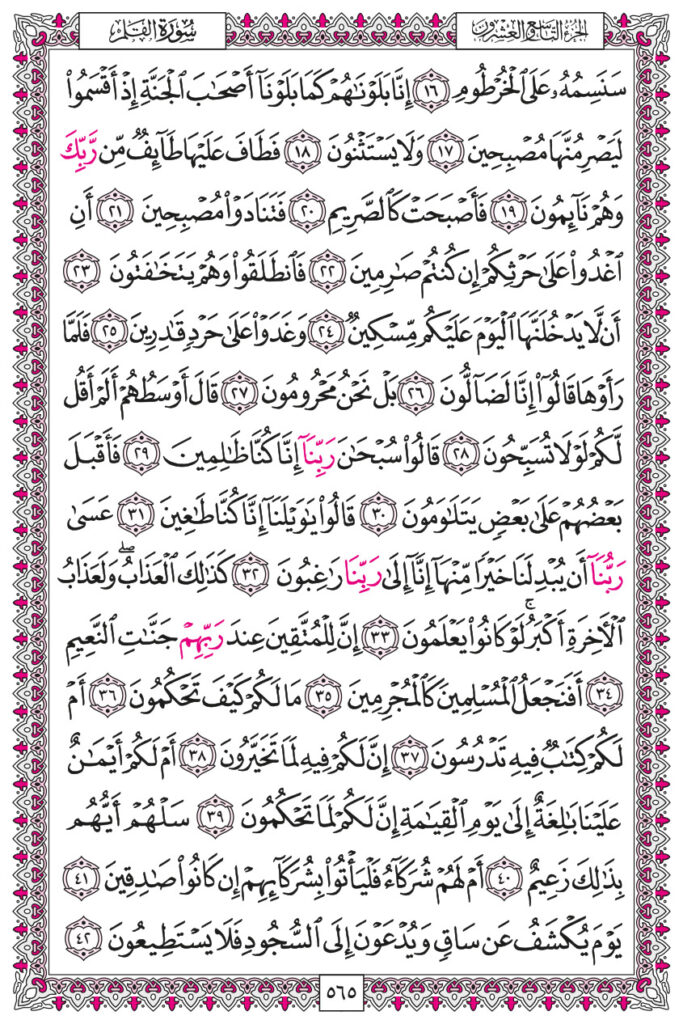 سُورَةُ القَلَمِ
الجُزءُ التَّاسِعُ وَالعِشْرُونَ
سَنَسِمُهُۥ عَلَى ٱلْخُرْطُومِ ١٦ إِنَّا بَلَوْنَٰهُمْ كَمَا بَلَوْنَآ أَصْحَٰبَ ٱلْجَنَّةِ إِذْ أَقْسَمُوا۟
لَيَصْرِمُنَّهَا مُصْبِحِينَ ١٧ وَلَا يَسْتَثْنُونَ ١٨ فَطَافَ عَلَيْهَا طَآئِفٌ مِّن رَّبِّكَ
وَهُمْ نَآئِمُونَ ١٩ فَأَصْبَحَتْ كَٱلصَّرِيمِ ٢٠ فَتَنَادَوْا۟ مُصْبِحِينَ ٢١ أَنِ
ٱغْدُوا۟ عَلَىٰ حَرْثِكُمْ إِن كُنتُمْ صَٰرِمِينَ ٢٢ فَٱنطَلَقُوا۟ وَهُمْ يَتَخَٰفَتُونَ ٢٣
أَن لَّا يَدْخُلَنَّهَا ٱلْيَوْمَ عَلَيْكُم مِّسْكِينٌ ٢٤ وَغَدَوْا۟ عَلَىٰ حَرْدٍ قَٰدِرِينَ ٢٥ فَلَمَّا
رَأَوْهَا قَالُوٓا۟ إِنَّا لَضَآلُّونَ ٢٦ بَلْ نَحْنُ مَحْرُومُونَ ٢٧ قَالَ أَوْسَطُهُمْ أَلَمْ أَقُل
لَّكُمْ لَوْلَا تُسَبِّحُونَ ٢٨ قَالُوا۟ سُبْحَٰنَ رَبِّنَآ إِنَّا كُنَّا ظَٰلِمِينَ ٢٩ فَأَقْبَلَ
بَعْضُهُمْ عَلَىٰ بَعْضٍ يَتَلَٰوَمُونَ ٣٠ قَالُوا۟ يَٰوَيْلَنَآ إِنَّا كُنَّا طَٰغِينَ ٣١ عَسَىٰ
رَبُّنَآ أَن يُبْدِلَنَا خَيْرًا مِّنْهَآ إِنَّآ إِلَىٰ رَبِّنَا رَٰغِبُونَ ٣٢ كَذَٰلِكَ ٱلْعَذَابُ ۖ وَلَعَذَابُ
ٱلْءَاخِرَةِ أَكْبَرُ ۚ لَوْ كَانُوا۟ يَعْلَمُونَ ٣٣ إِنَّ لِلْمُتَّقِينَ عِندَ رَبِّهِمْ جَنَّٰتِ ٱلنَّعِيمِ
٣٤ أَفَنَجْعَلُ ٱلْمُسْلِمِينَ كَٱلْمُجْرِمِينَ ٣٥ مَا لَكُمْ كَيْفَ تَحْكُمُونَ ٣٦ أَمْ
لَكُمْ كِتَٰبٌ فِيهِ تَدْرُسُونَ ٣٧ إِنَّ لَكُمْ فِيهِ لَمَا تَخَيَّرُونَ ٣٨ أَمْ لَكُمْ أَيْمَٰنٌ
عَلَيْنَا بَٰلِغَةٌ إِلَىٰ يَوْمِ ٱلْقِيَٰمَةِ إِنَّ لَكُمْ لَمَا تَحْكُمُونَ ٣٩ سَلْهُمْ أَيُّهُم
بِذَٰلِكَ زَعِيمٌ ٤٠ أَمْ لَهُمْ شُرَكَآءُ فَلْيَأْتُوا۟ بِشُرَكَآئِهِمْ إِن كَانُوا۟ صَٰدِقِينَ ٤١
يَوْمَ يُكْشَفُ عَن سَاقٍ وَيُدْعَوْنَ إِلَى ٱلسُّجُودِ فَلَا يَسْتَطِيعُونَ ٤٢
٥٦٥